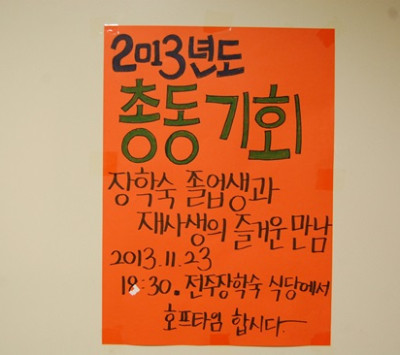 2013년도
총동기회
장학숙 졸업생과
재사생의 즐거운 만남
2013.11.23
18:30. 전주장학숙 식당에서
호프타임 합시다.